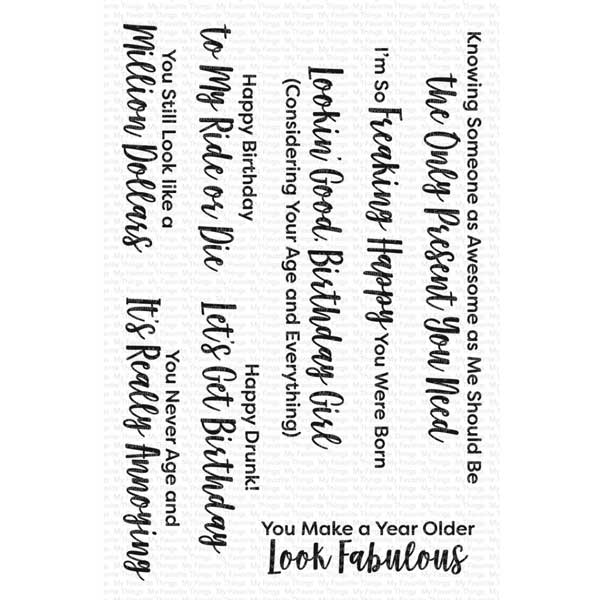 Knowing Someone as Awesome as Me Should Be
the Only Present You Need
I'm So Freaking Happy You Were Born
Lookin' Good, Birthday Girl
(Considering Your Age and Everything)
Happy Birthday
to My Ride or Die
You Still Look like a
Million Dollars
Happy Drunk!
Let's Get Birthday
You Never Age and
It's Really Annoying
You Make a Year Older
Look Fabulous
My Favorite Things